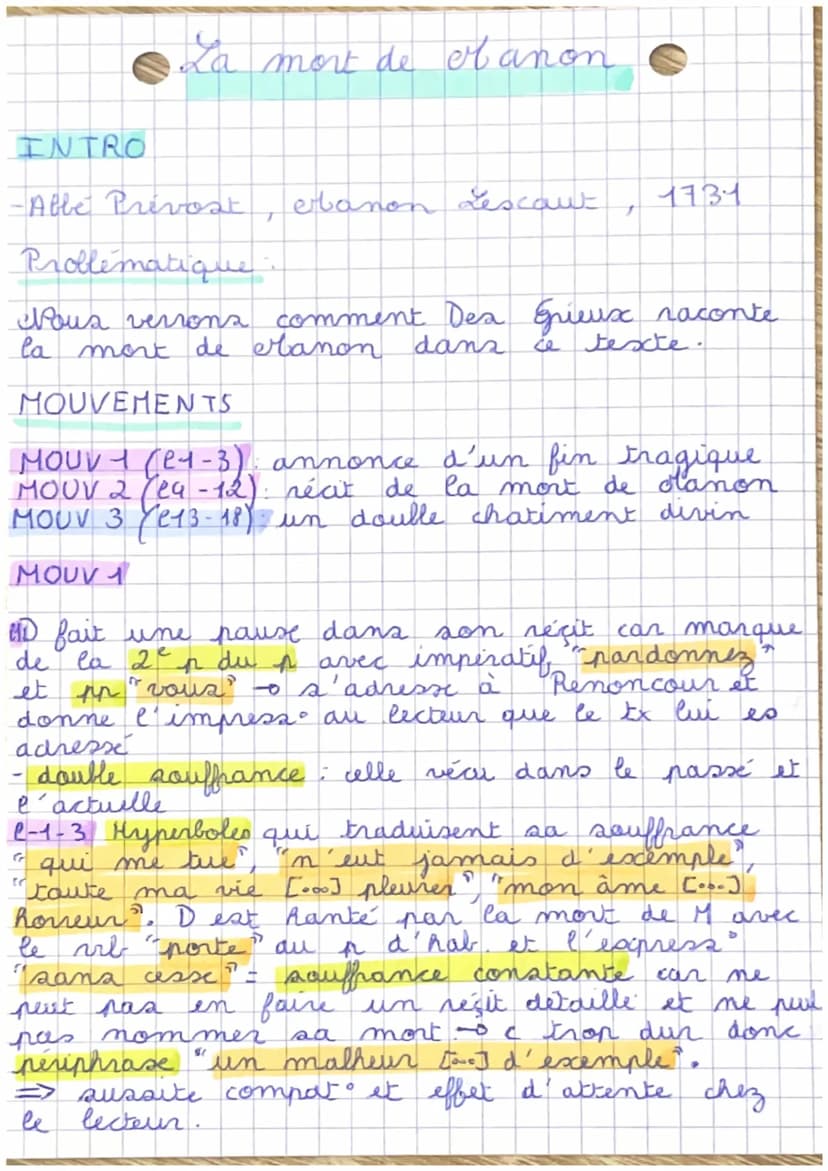 La mort de Manon
INTRO
-Abbé Prévost, Manon Lescaut, 1731
Problématique :
Nous verrons comment Des Grieux raconte
la mort de Manon dans ce texte.
MOUVEMENTS
MOUV 1 (l1-3): annonce d'un fin tragique
MOUV 2 (l4-12): récit de la mort de Manon
MOUV 3 (l13-18): un double chatiment divin
MOUV 1
D fait une pause dans son récit car marque
de la 2e p du p avec impératif "pardonnez"
et pp "vous" → s'adresse à Renoncour et
donne l'impress° au lecteur que le tx lui es
adressé
- double souffrance : celle vécu dans le passé et
l'actuelle
l-1-3 Hyperboles qui traduisent sa souffrance
"qui me tue", "n'eut jamais d'exemple",
"toute ma vie [...] pleurer", "mon âme [...]
horreur". D est hanté par la mort de M avec
le vrb "porte" au p d'hab. et l'express°
"sans cesse" = souffrance constante car ne
peut pas en faire un réçit détaillé et ne peut
pas nommer sa mort → c trop dur donc
périphrase "un malheur [...] d'exemple".
⇒ suscite compat° et effet d'attente chez
le lecteur.